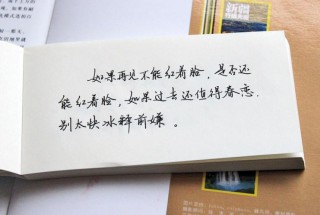 新疆
如果再见不能红着脸，是否还
能红着脸，如果过去还值得眷恋.
别太快冰释前嫌。